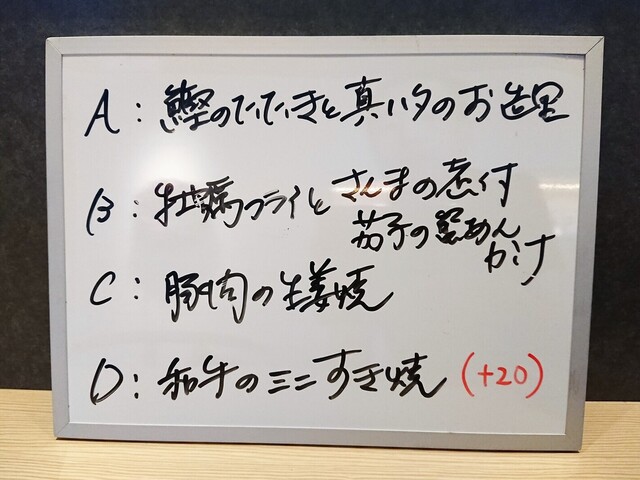 A：鰹のたたきと真いかのお造里
B：牡蠣フライとさんまの煮付
茄子の
かけ
C：豚肉の生姜焼
D：和牛のミニすき焼 (+20)